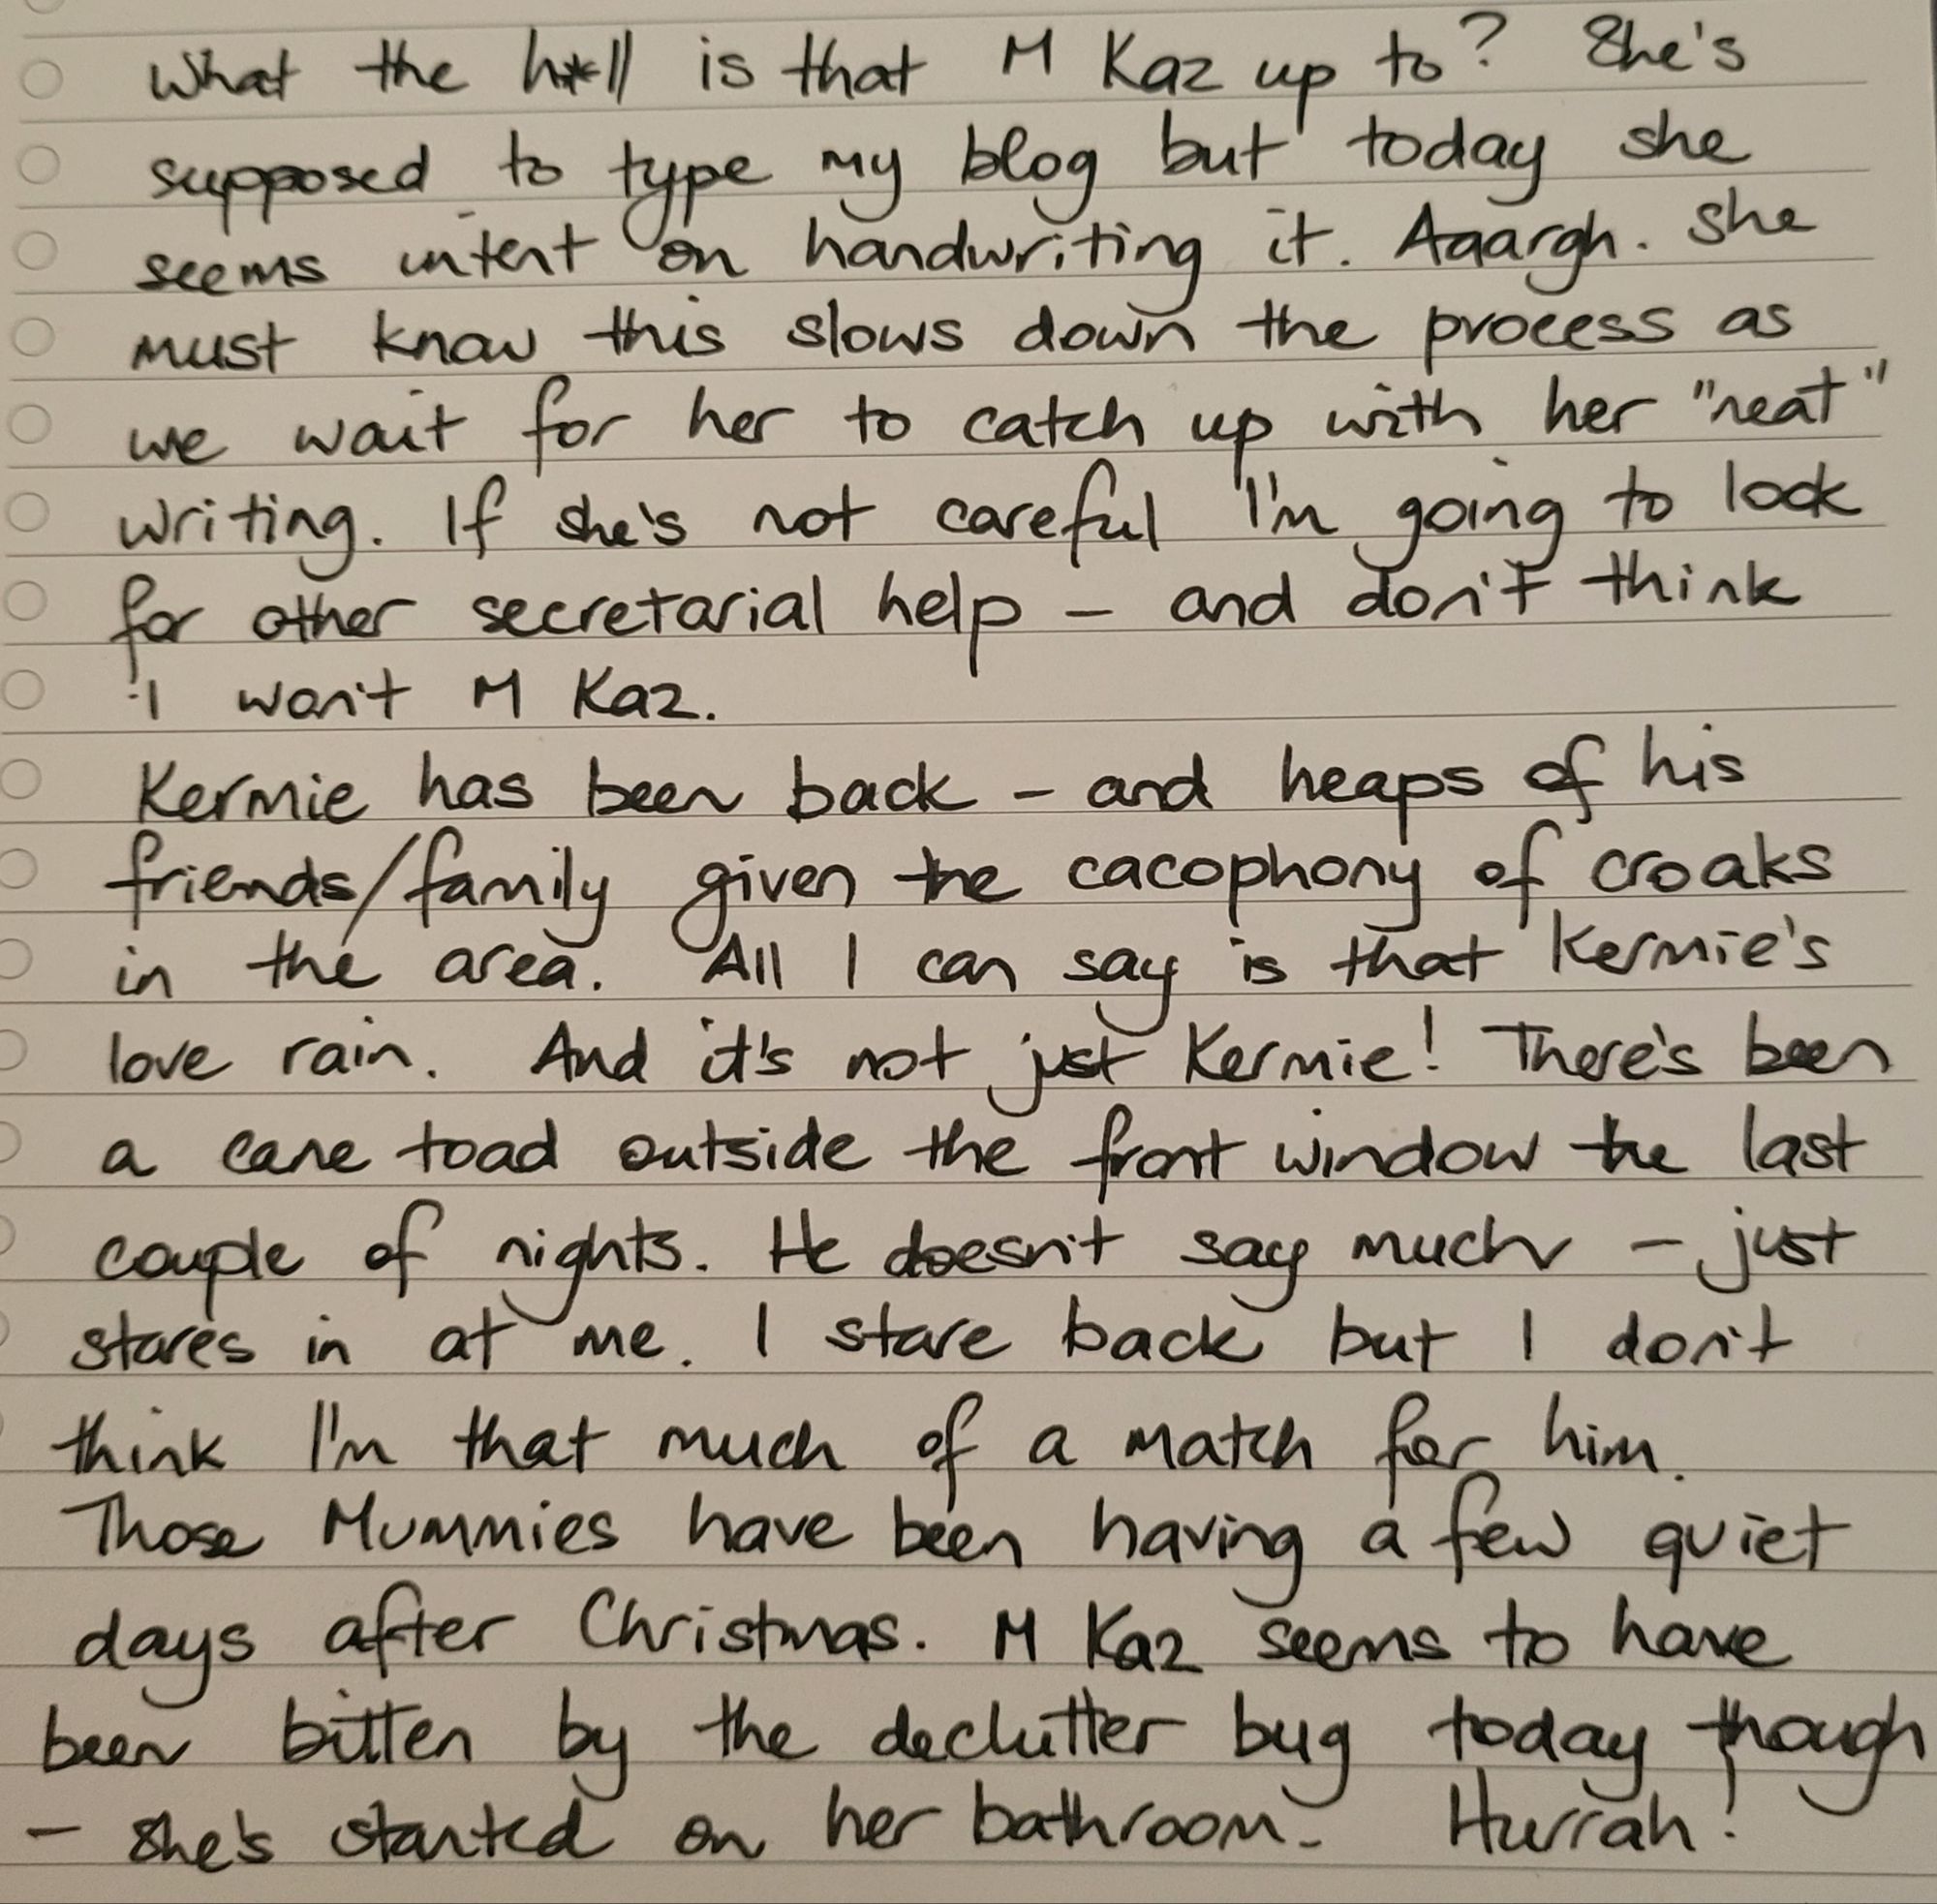 What the h*ll is that M Kaz up to? She's
supposed to type my blog but today she
seems intent on handwriting it. Aaargh. She
must know this slows down the process as
we wait for her to catch up with her "neat"
writing. If she's not careful I'm going to look
for other secretarial help - and don't think
I won't M Kaz.
Kermie has been back - and heaps of his
friends/family given the cacophony of croaks
in the area. All I can say is that Kermie's
love rain. And it's not just Kermie! There's been
a cane toad outside the front window the last
couple of nights. He doesn't say much - just
stares in at me. I stare back but I don't
think I'm that much of a match for him.
Those Mummies have been having a few quiet
days after Christmas. M Kaz seems to have
been bitten by the declutter bug today though
- she's started on her bathroom. Hurrah!